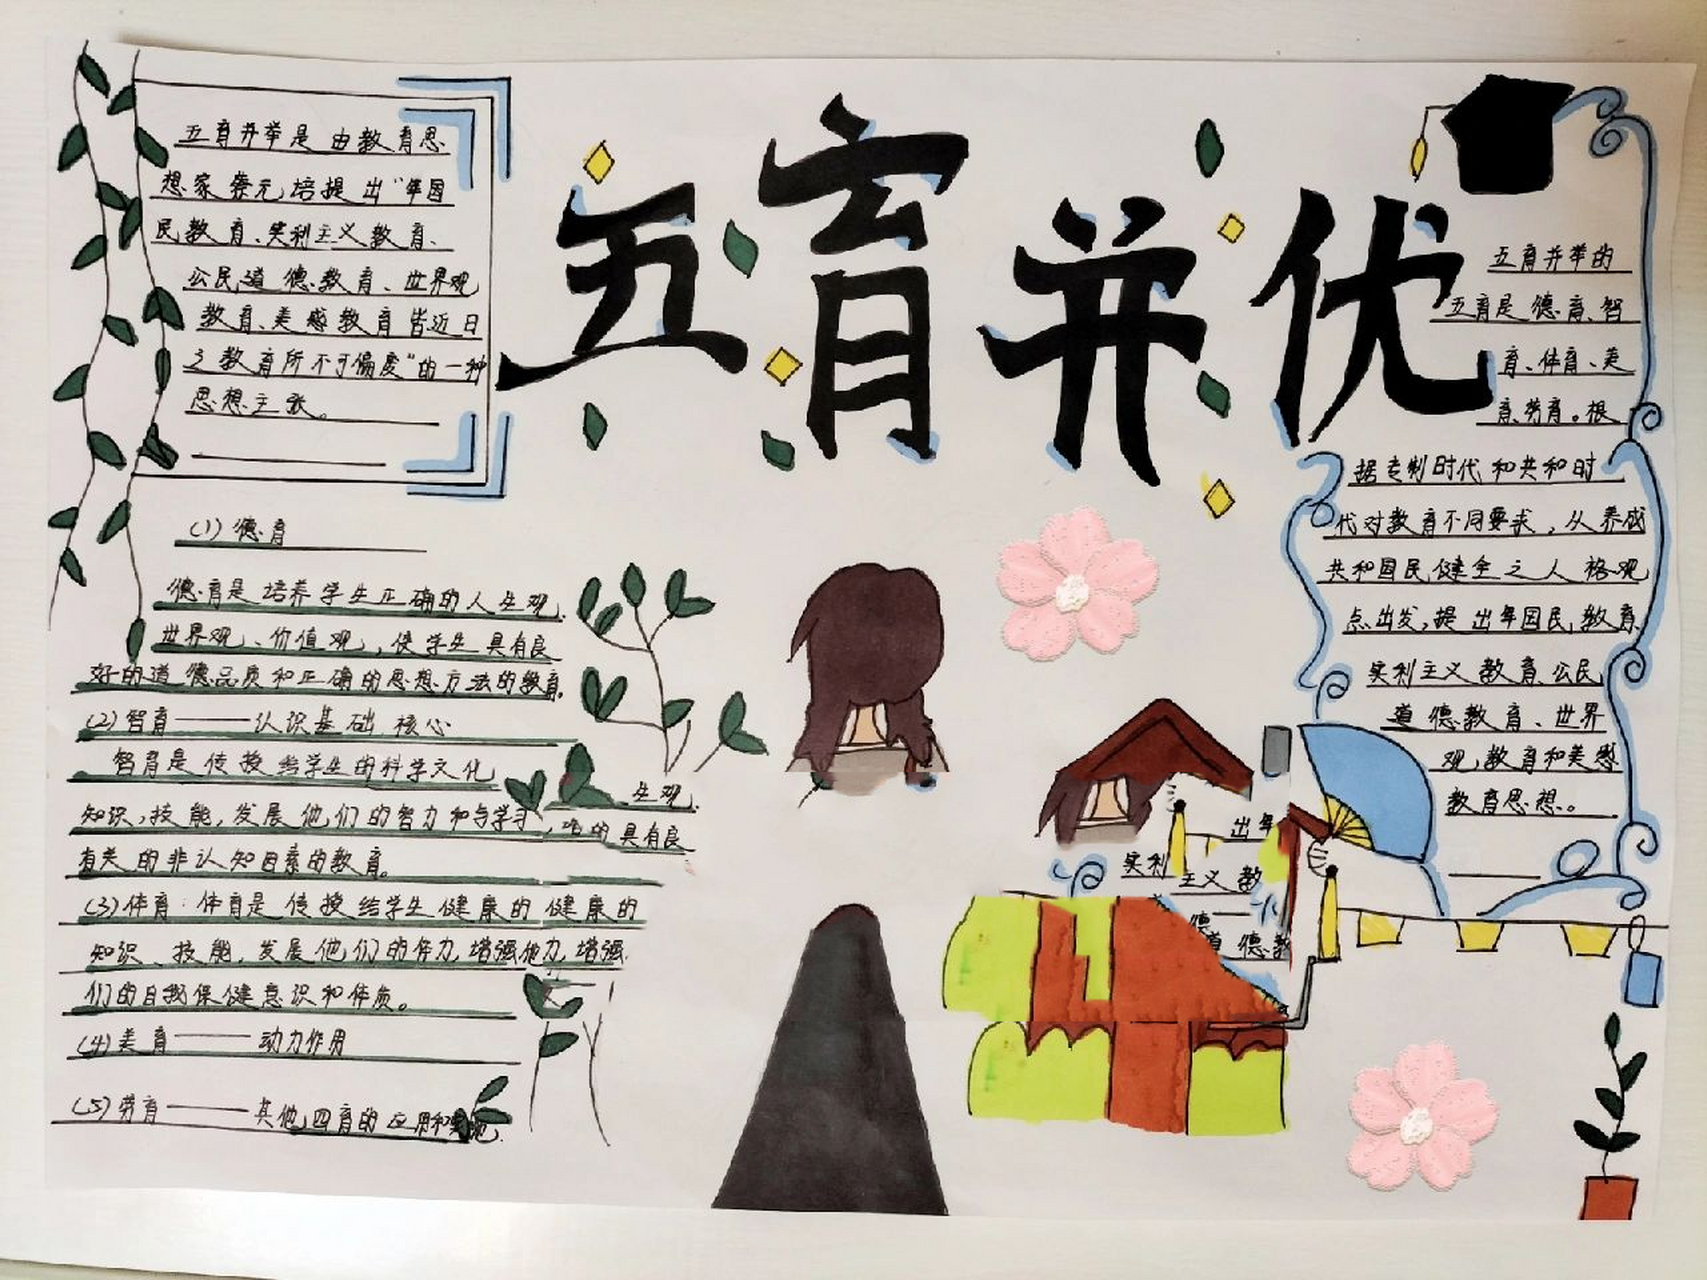 五育并优
五育并举是由教育思
想家蔡元培提出"军国
民教育、实利主义教育、
公民道德教育、世界观
教育、美感教育皆近日
之教育所不可偏废"的一种
思想主张。
(1)德育
德育是培养学生正确的人生观、
世界观、价值观,使学生具有良
好的道德品质和正确的思想方法的教育。
(2)智育——认识基础 核心
智育是传授给学生的科学文化
知识,技能,发展他们的智力和与学习
有关的非认知因素的教育。
(3)体育:体育是传授给学生健康的 健康的
知识、技能,发展他们的体力,增强他力,增强
们的自我保健意识和体质。
(4)美育——动力作用
(5)劳育——其他四育的应用和实施.
生观.
的具有良
五育并举的
五育是德育、智
育、体育、美
育、劳育。根
据专制时代和共和时
代对教育不同要求,从养成
共和国民健全之人格观
点出发,提出军国民教育
实利主义教育、公民
道德教育、世界
观,教育和美感
教育思想。
出军
实利
主义教
德
道德教